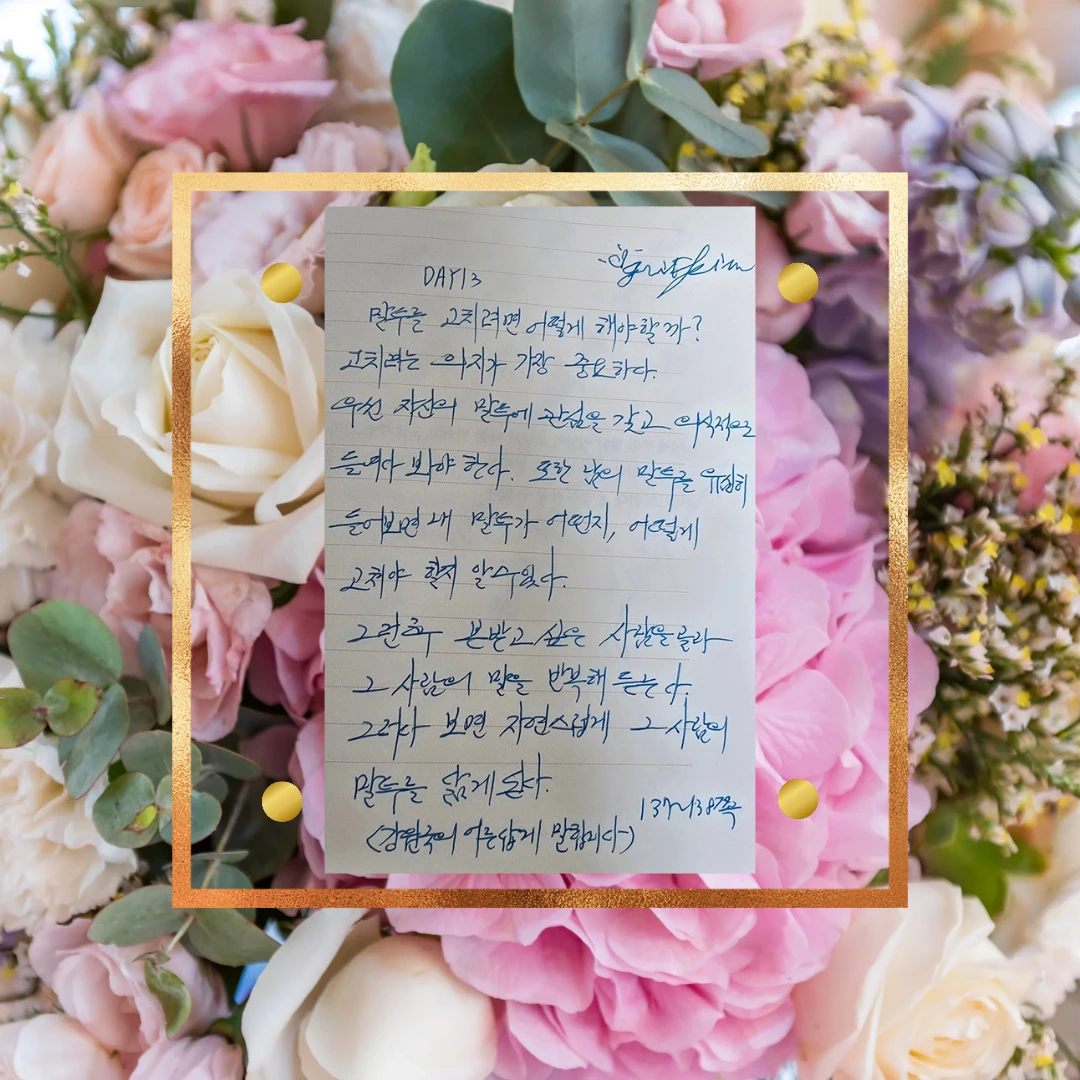 DAY13
말투를 고치려면 어떻게 해야할까?
고치려는 의지가 가장 중요하다.
우선 자신의 말투에 관심을 갖고 의식적으로
들여다 봐야 한다. 또한 남의 말투를 유심히
들어보면 내 말투가 어떤지, 어떻게
고쳐야 할지 알 수 있다.
그런 후 본받고 싶은 사람을 골라
그 사람의 말을 반복해 듣는다.
그러다 보면 자연스럽게 그 사람의
말투를 닮게 된다.
137~138쪽
<강원국의 어른답게 말합니다>